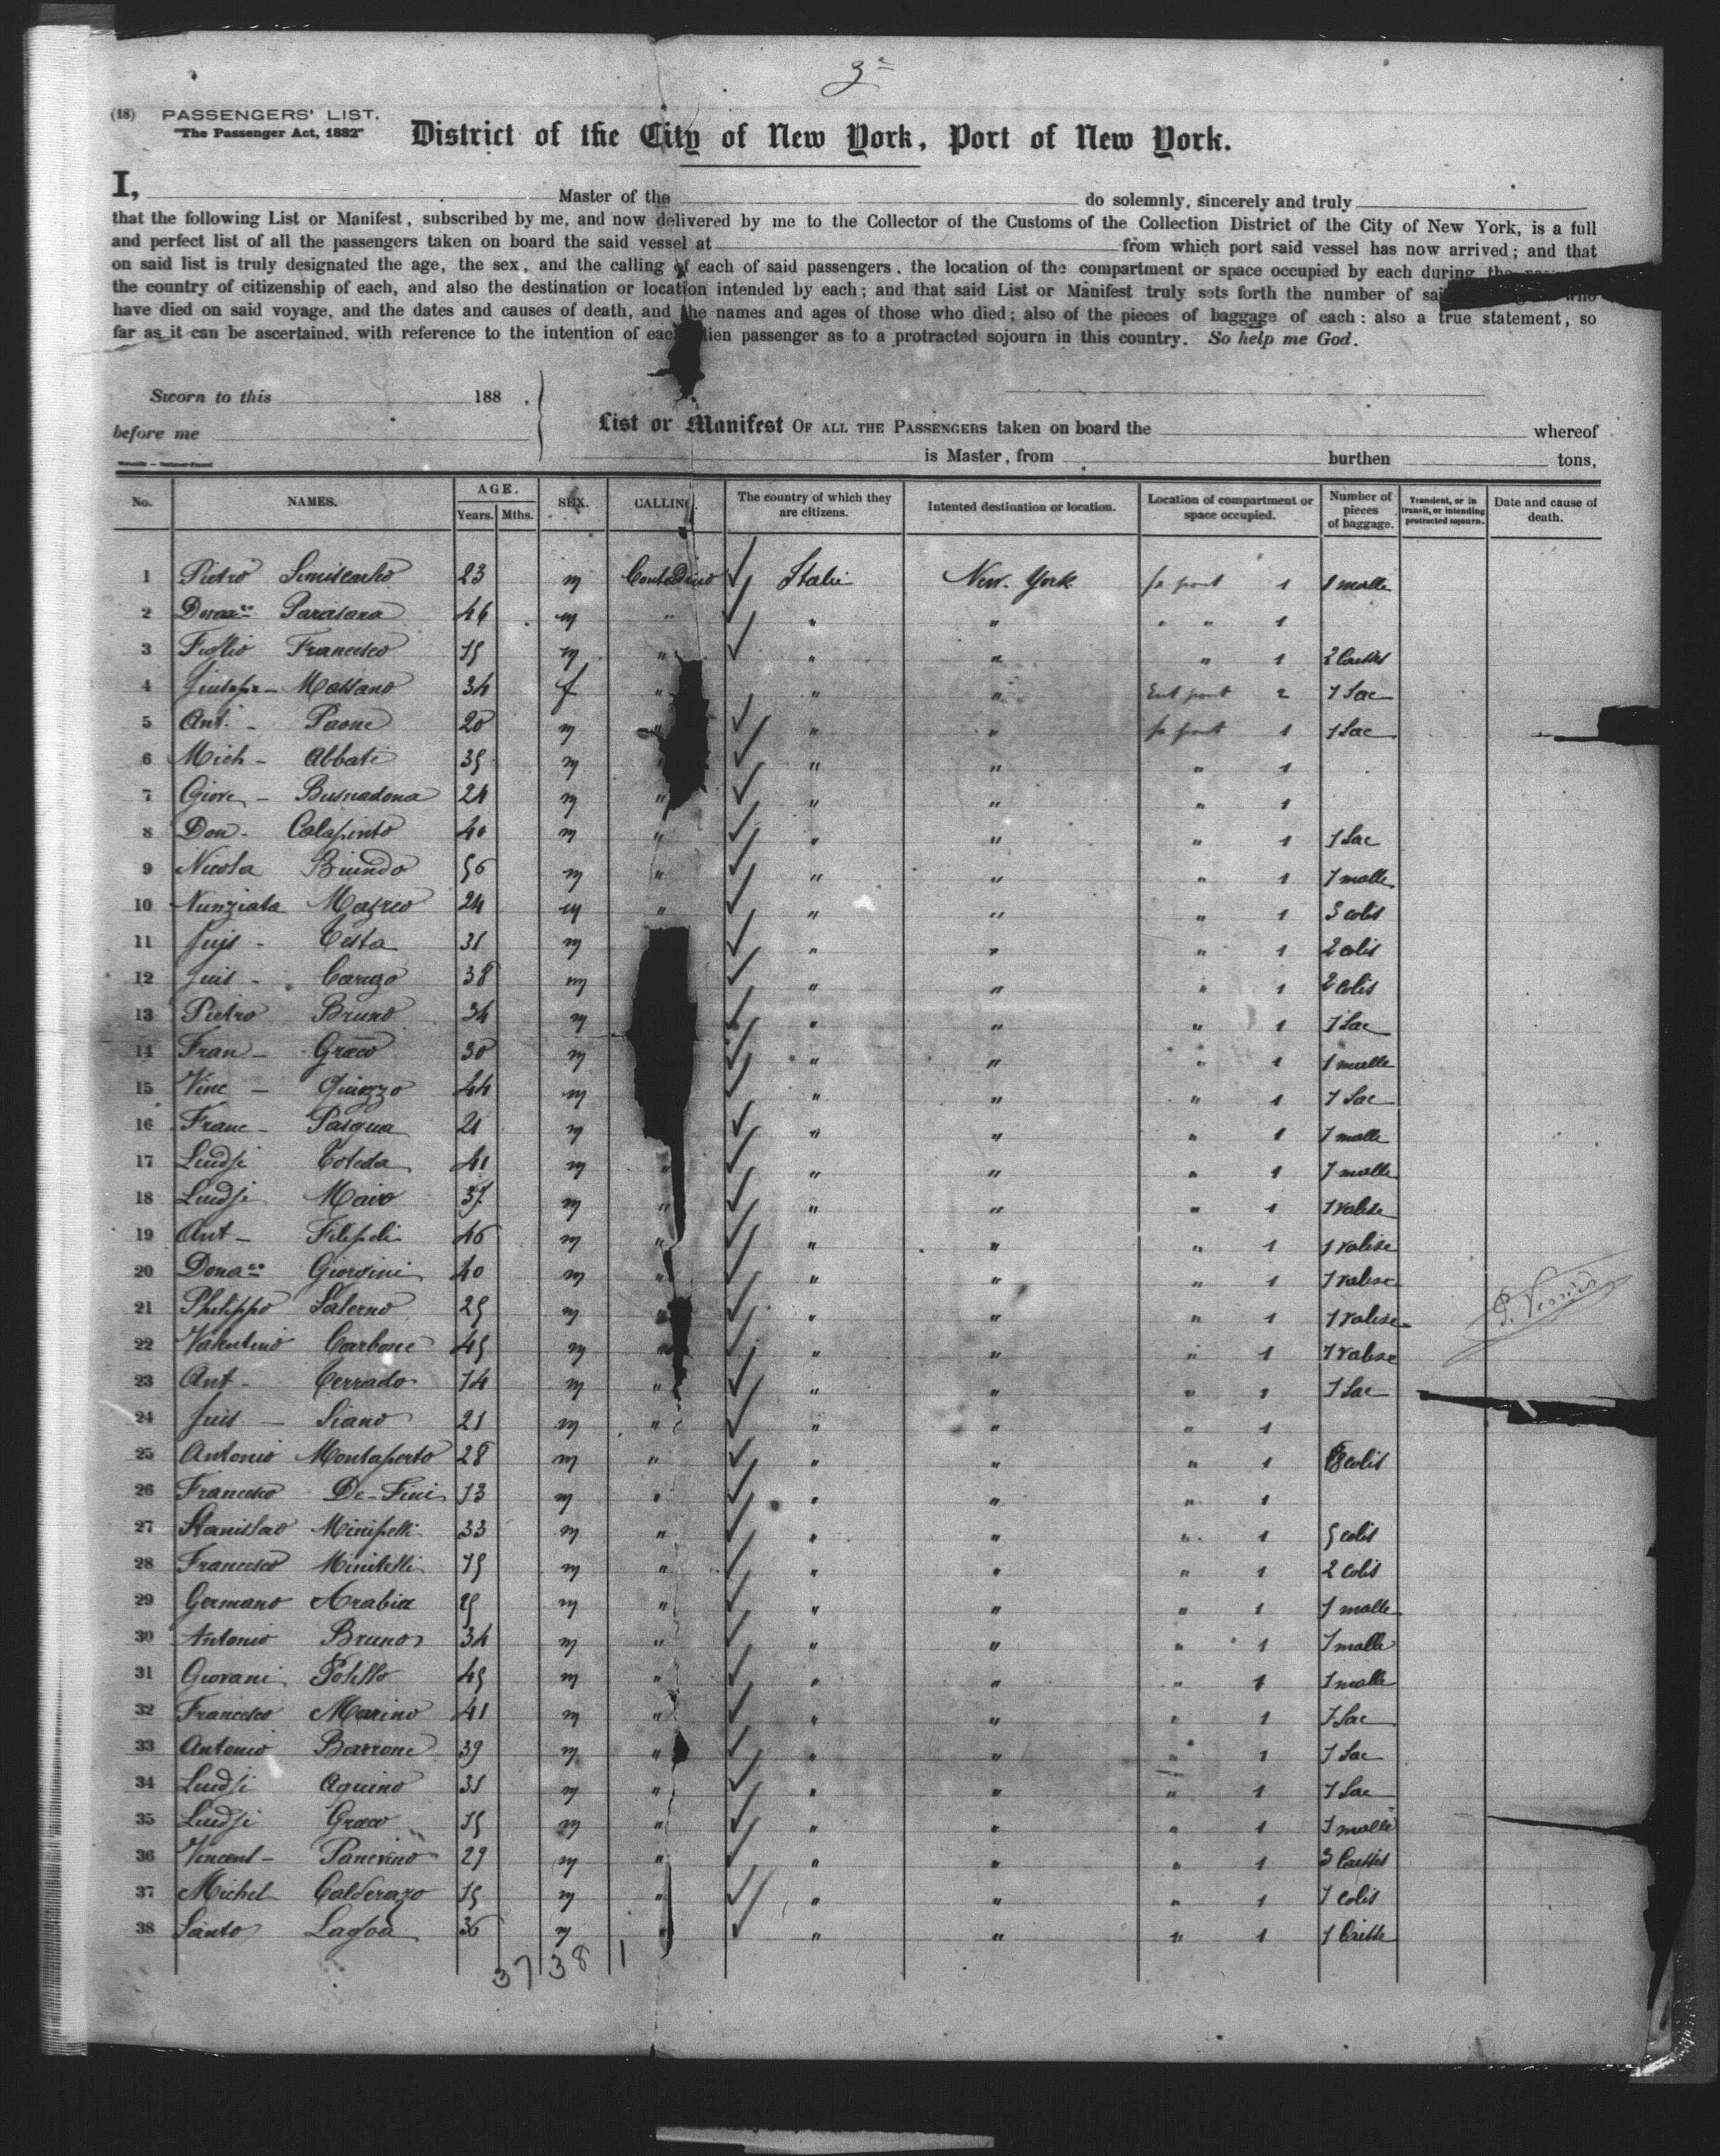 3=
(18) PASSENGERS' LIST.
"The Passenger Act, 1882"
District of the City of New York, Port of New York.
I, Master of the do solemnly, sincerely and truly
that the following List or Manifest, subscribed by me, and now delivered by me to the Collector of the Customs of the Collection District of the City of New York, is a full
and perfect list of all the passengers taken on board the said vessel at from which port said vessel has now arrived; and that
on said list is truly designated the age, the sex, and the calling of each of said passengers, the location of the compartment or space occupied by each during the
the country of citizenship of each, and also the destination or location intended by each; and that said List or Manifest truly sets forth the number of who
have died on said voyage, and the dates and causes of death, and the names and ages of those who died; also of the pieces of baggage of each: also a true statement, so
far as it can be ascertained, with reference to the intention of each alien passenger as to a protracted sojourn in this country. So help me God.
Sworn to this 188 .
before me
List or Manifest OF ALL THE PASSENGERS taken on board the whereof
is Master, from burthen tons,
No. NAMES. AGE. Years. Mths. SEX. CALLING. The country of which they are citizens. Intented destination or location. Location of compartment or space occupied. Number of pieces of baggage. Transient, or in transit, or intending protracted sojourn. Date and cause of death.
1 Pietro 23 m Contadino ✓ Italie New-York 1 1 malle
2 Parasana 46 m " ✓ " " " " 1
3 Figlio Francesco 15 m " ✓ " " " 1 2 Caisses
4 Massano 34 f " " " 2 1 Sac
5 Ant. - Paone 20 m " ✓ " " 1 1 Sac
6 Mich - Abbati 35 m " ✓ " " " 1
7 Giov. - Busnadona 24 m " ✓ " " " 1
8 Don - Calapinto 40 m " ✓ " " " 1 1 Sac
9 Nicola Biundo 56 m " ✓ " " " 1 1 malle
10 Nunziata Mazreo 24 m " ✓ " " " 1 3 colis
11 - Testa 31 m ✓ " " " 1 2 colis
12 - Caruzo 38 m ✓ " " " 1 2 colis
13 Pietro Bruno 34 m ✓ " " " 1 1 Sac
14 Fran - Graeco 30 m ✓ " " " 1 1 malle
15 Vinc - 44 m ✓ " " " 1 1 Sac
16 Franc - Pasqua 21 m ✓ " " " 1 1 malle
17 Luidji Toteda 41 m " ✓ " " " 1 1 malle
18 Luidji Mairo 37 m " ✓ " " " 1 1 valise
19 Ant - Filipeli 46 m " ✓ " " " 1 1 valise
20 Dona= Giorsini 40 m " ✓ " " " 1 1 valise
21 Philippo Salerno 25 m " ✓ " " " 1 1 valise
22 Valentino Carbone 45 m " ✓ " " " 1 1 valise
23 Ant - Terrado 14 m " ✓ " " " 1 1 Sac
24 - Siano 21 m " ✓ " " " 1
25 Antonio Montaperto 28 m " ✓ " " " 1 8 colis
26 Francesco De-Fini 13 m " ✓ " " " 1
27 Stanislao Minipelli 33 m " ✓ " " " 1 5 colis
28 Francesco Minitelli 15 m " ✓ " " " 1 2 colis
29 Germano Arabia 25 m " ✓ " " " 1 1 malle
30 Antonio Bruno 34 m " ✓ " " " 1 1 malle
31 Giovani Polillo 45 m " ✓ " " " 1 1 malle
32 Francesco Marino 41 m " ✓ " " " 1 1 Sac
33 Antonio Barrone 39 m " ✓ " " " 1 1 Sac
34 Luidji Aquino 31 m " ✓ " " " 1 1 Sac
35 Luidji Graeco 15 m " ✓ " " " 1 1 malle
36 Vincent - Panevino 29 m " ✓ " " " 1 3 Caisses
37 Michel Calderazo 15 m " ✓ " " " 1 1 colis
38 Santo 36 m " ✓ " " " 1 1 Caisse
37 38 1